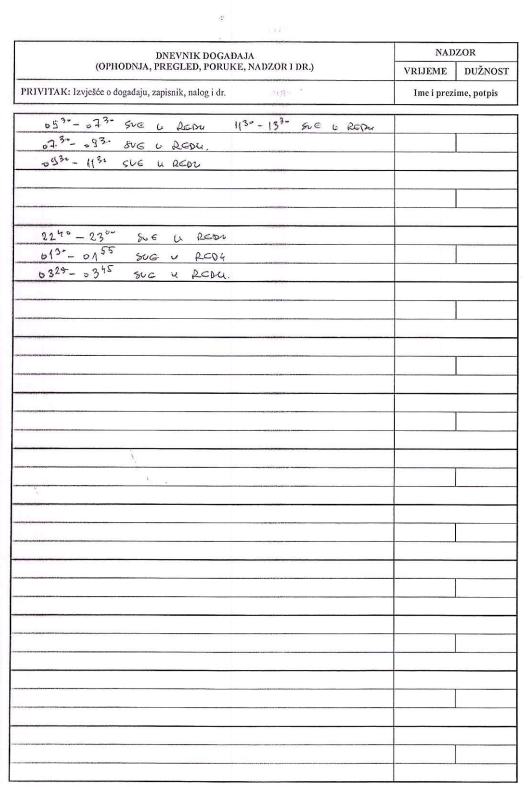 DNEVNIK DOGAĐAJA
(OPHODNJA, PREGLED, PORUKE, NADZOR I DR.)
NADZOR
VRIJEME DUŽNOST
PRIVITAK: Izvješće o događaju, zapisnik, nalog i dr.
Ime i prezime, potpis
05³⁰ - 07³⁰ SVE U REDU 11³⁰ - 13³⁰ SVE U REDU
07³⁰ - 09³⁰ SVE U REDU.
09³⁰ - 11³⁰ SVE U REDU
22⁴⁰ - 23⁰⁰ SVE U REDU
01³⁰ - 01⁵⁵ SVE U REDU
03²⁵ - 03⁴⁵ SVE U REDU.